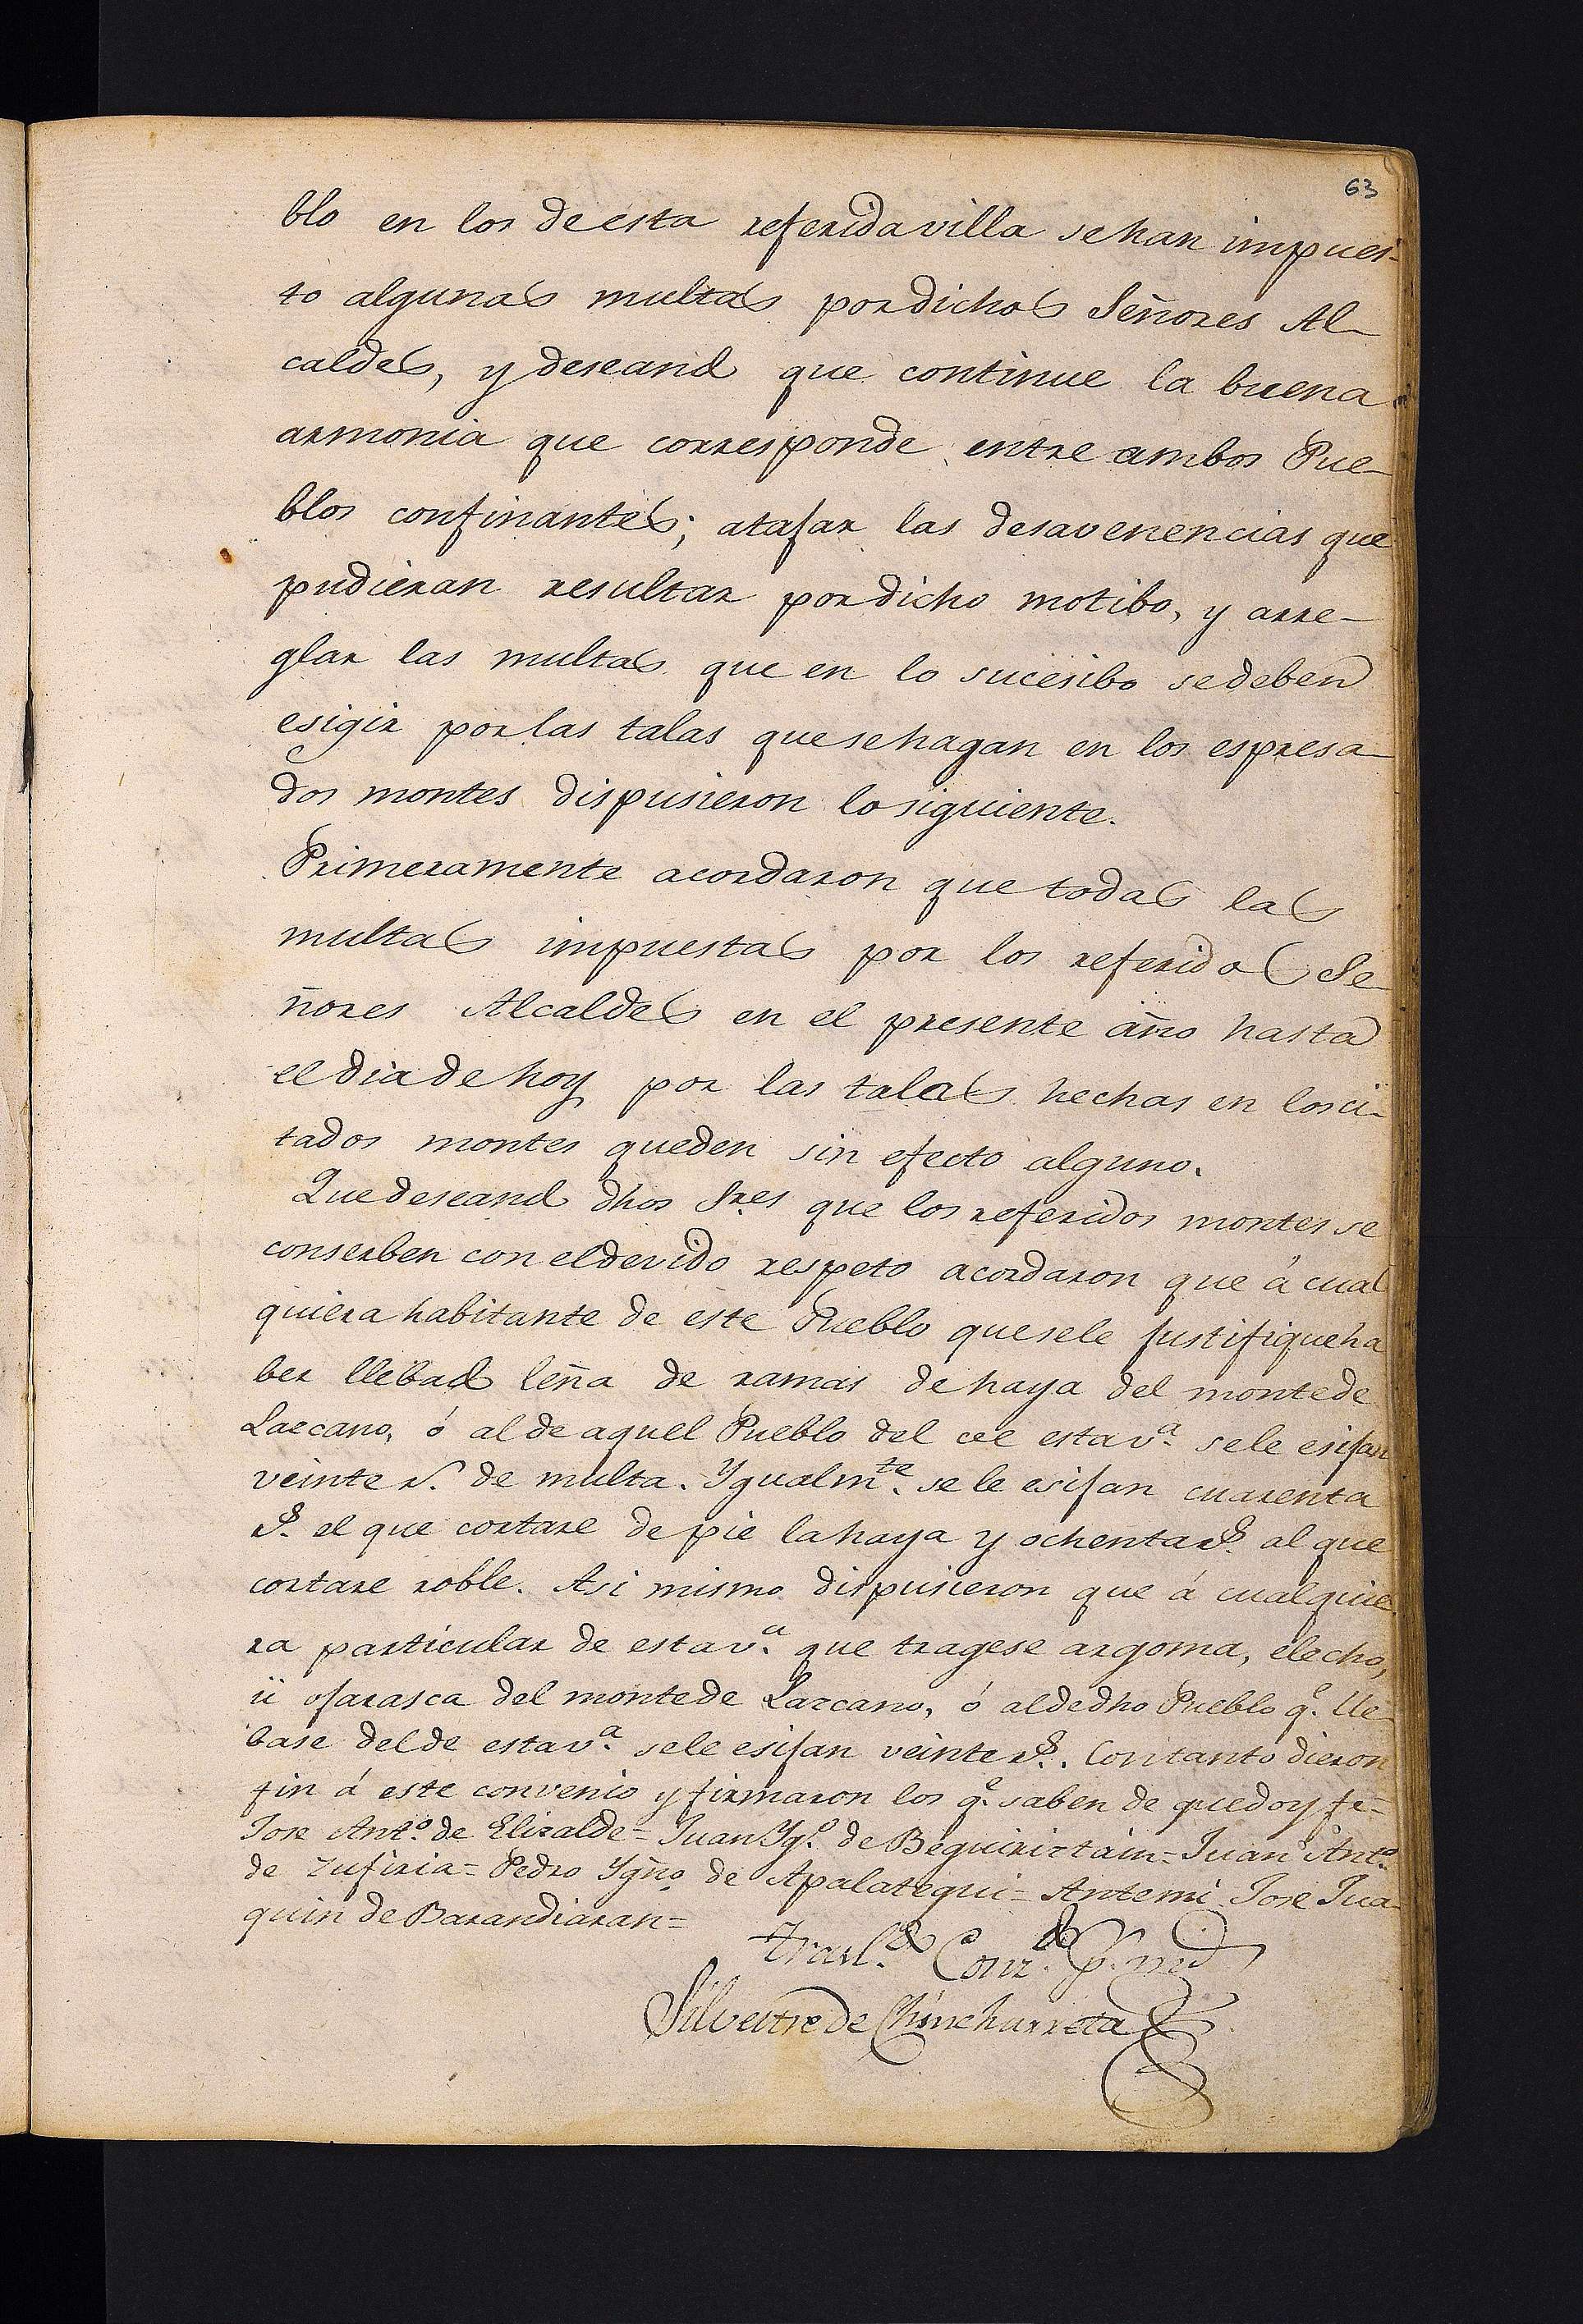 63
blo en los de esta referida villa se han impues-
to algunas multas por dichos Señores Al-
caldes, y deseando que continue la buena
armonia que corresponde entre ambos Pue-
blos confinantes; atajar las desavenencias que
pudieran resultar por dicho motibo, y arre-
glar las multas que en lo sucesibo se deben
esigir por las talas que se hagan en los espresa-
dos montes dispusieron lo siguiente.
Primeramente acordaron que todas las
multas impuestas por los referidos Se-
ñores Alcaldes en el presente año hasta
el dia de hoy por las talas hechas en los ci-
tados montes queden sin efecto alguno.
Que deseando dhos Sres que los referidos montes se
conserben con el devido respeto acordaron que á cual
quiera habitante de este Pueblo que se le justifique ha
ber llebado leña de ramas de haya del monte de
Lazcano, ó al de aquel Pueblo del de esta v.ª se le esijan
veinte r.s de multa. Ygualm.te se le esijan cuarenta
r.s al que cortare de pie la haya y ochenta r.s al que
cortare roble. Asi mismo dispusieron que á cualquie
ra particular de esta v.ª que tragese argoma, elecho,
ü ojarasca del monte de Lazcano, ó al de dho Pueblo q.e lle-
base del de esta v.ª se le esijan veinte r.s. Con tanto dieron
fin á este convenio y firmaron los q.e saben de que doy fe=
Jose Ant.o de Elizalde= Juan Yg.o de Beguiriztain= Juan Ant.o
de Zufiria= Pedro Ygn.o de Apalategui= Antemi Jose Jua-
quin de Barandiaran=
Silvestre de Chinchurreta